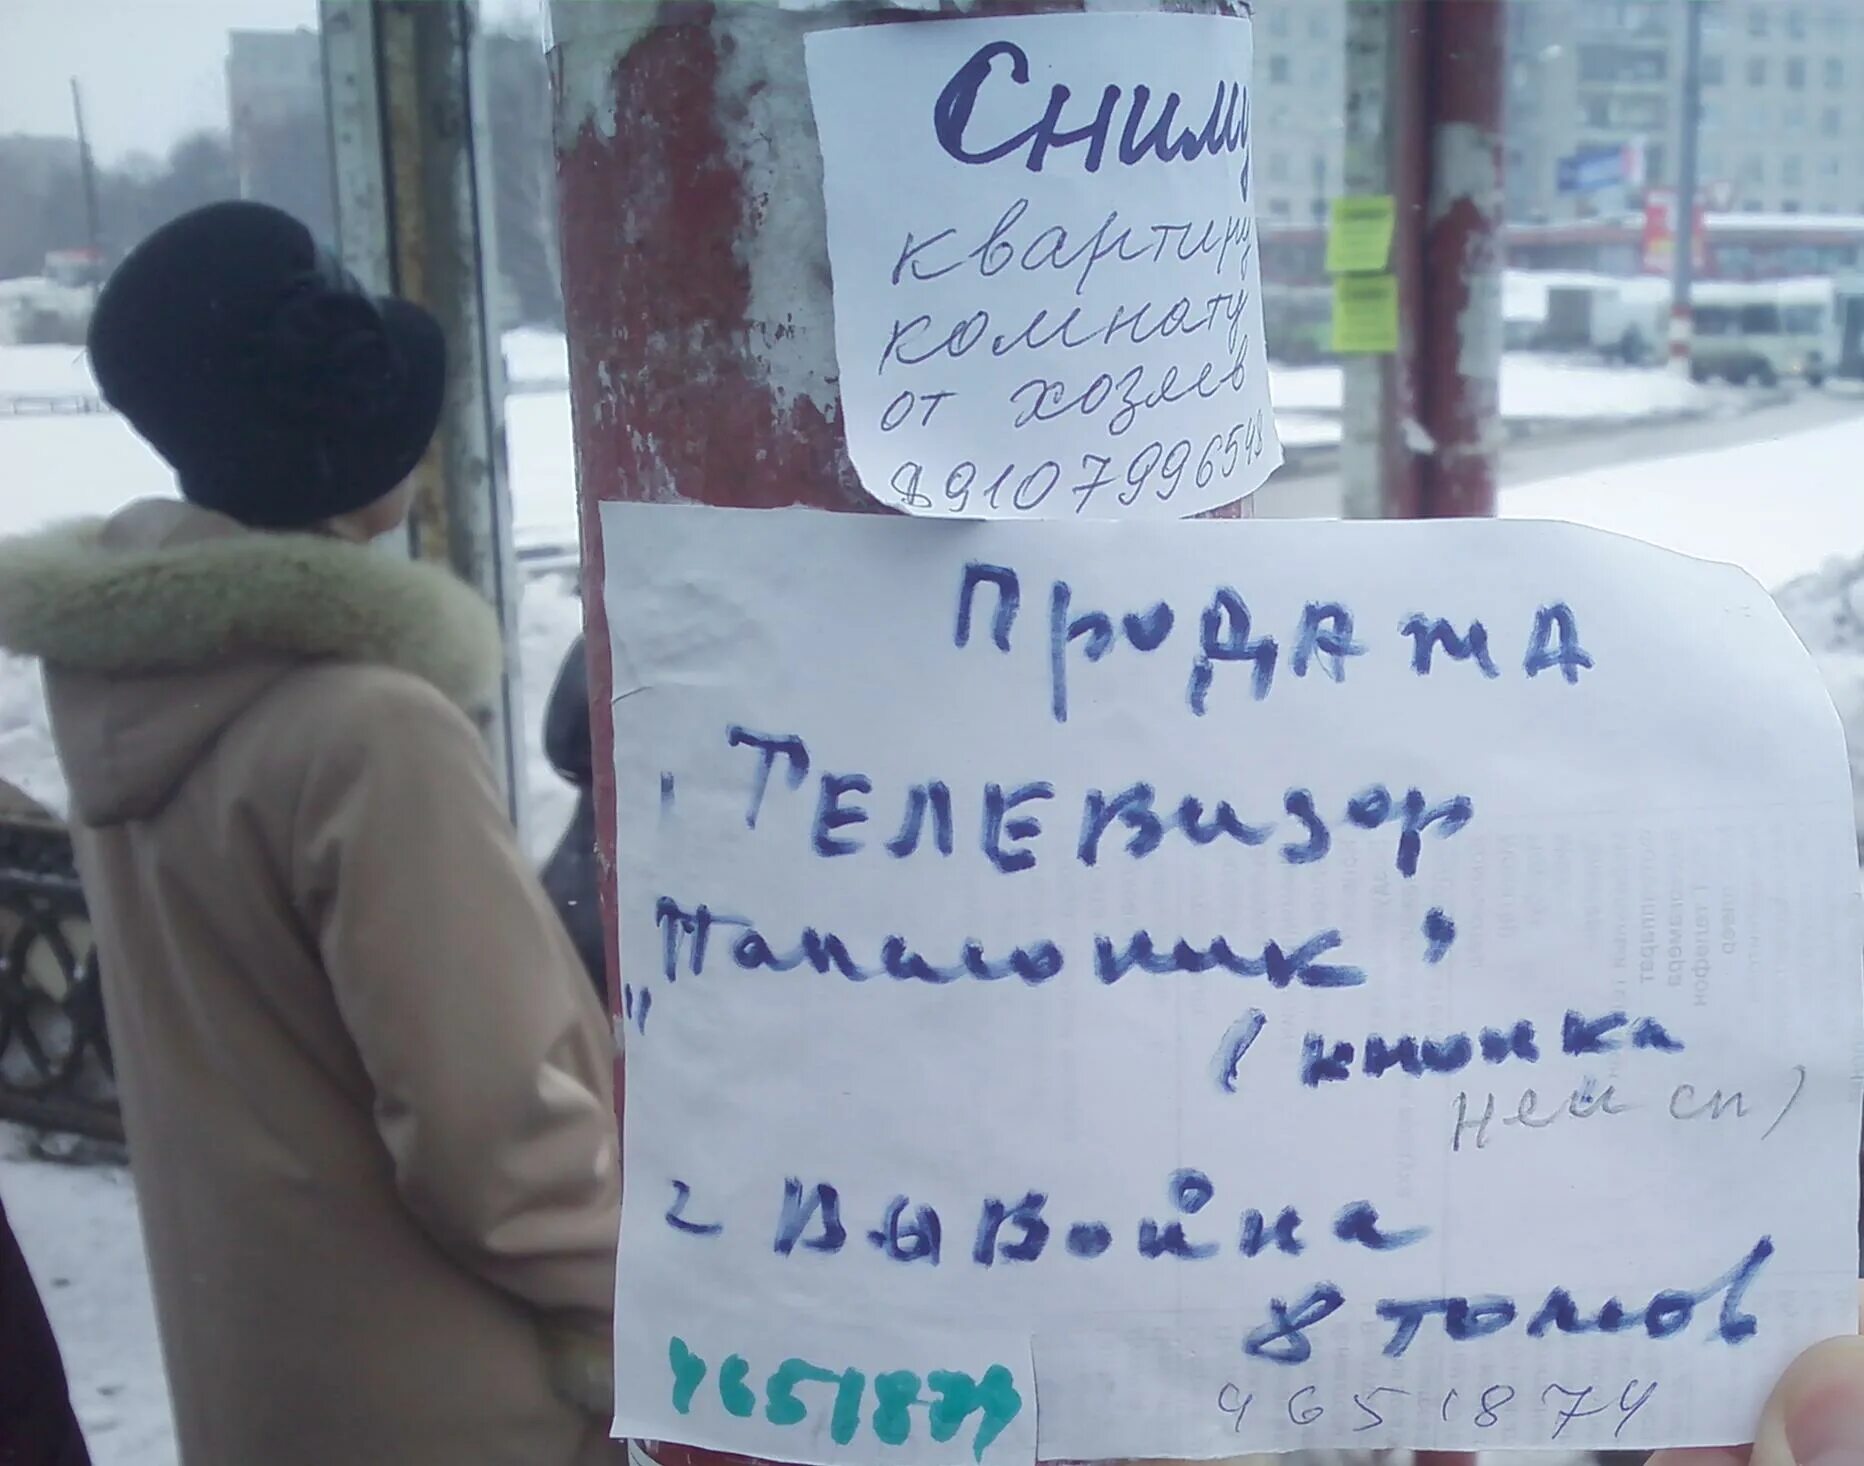 Сниму
квартиру
комнату
от хозяев
89107996548
Продажа
ТЕЛЕВизор
"
(кнопка
неисп)
2 Вы Война
8 томов
4651874
4651874